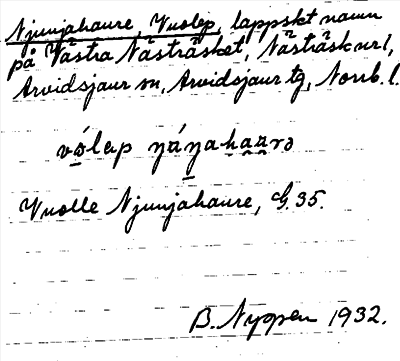 Njunjahaure, Vuolep, lappskt namn
på Västra Nästräsket, Nästräsk nr 1,
Arvidsjaur sn, Arvidsjaur tg, Norrb. l.
vó̱lep ŋáŋaha̮u̮rə
Vuolle Njunjahaure, G. 35.
B. Nypen 1932.